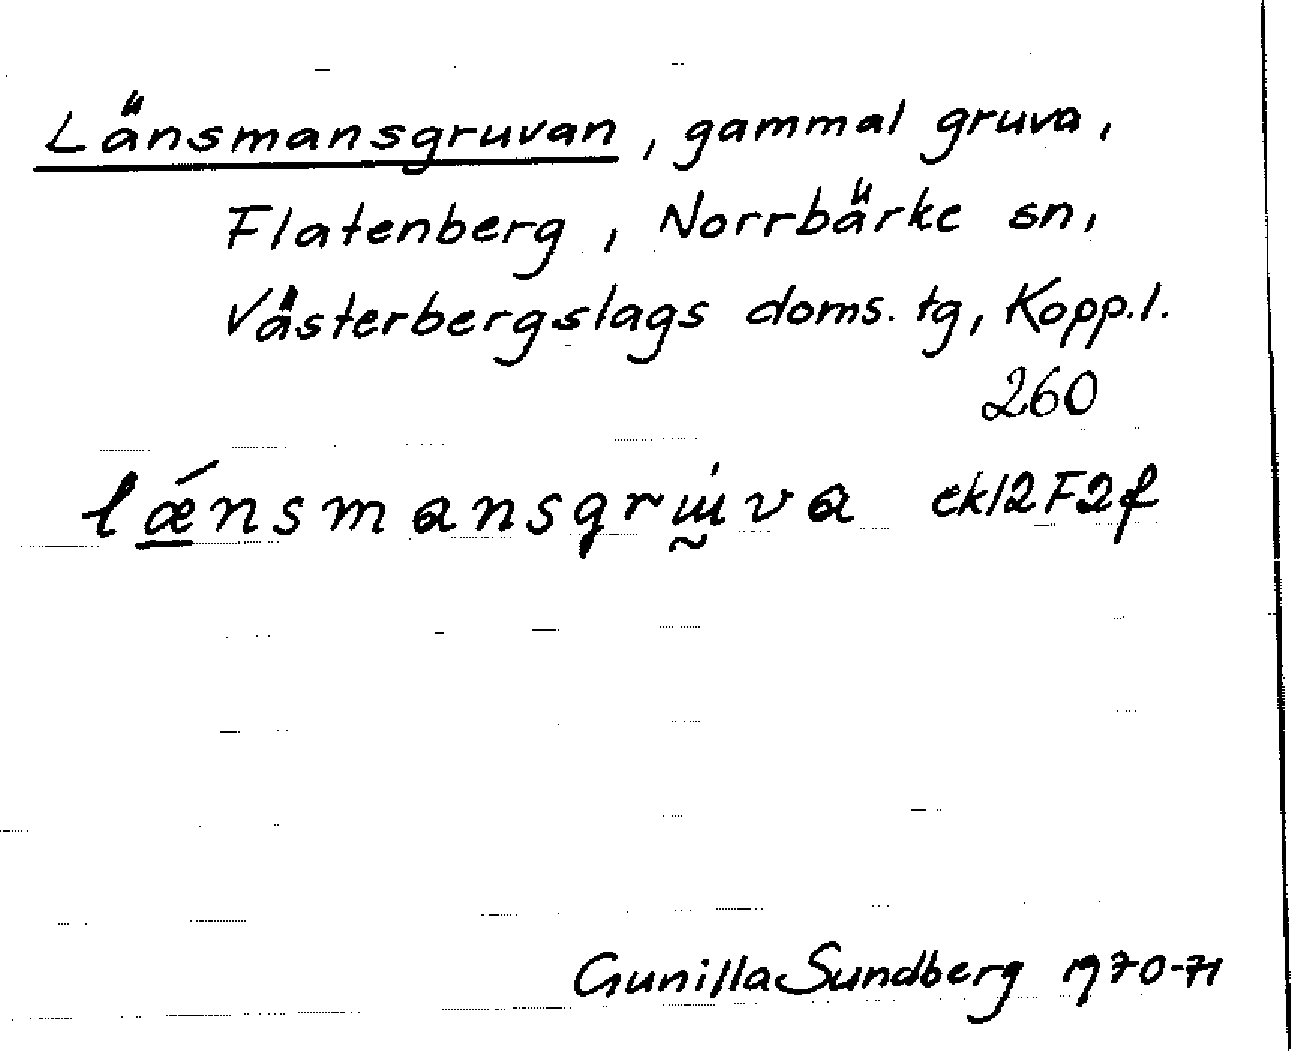 Länsmansgruvan, gammal gruva,
Flatenberg, Norrbärke sn,
Västerbergslags doms. tg, Kopp.l.
260
lǽnsmansgrɯ́va ekl2F2f
Gunilla Sundberg 1970-71